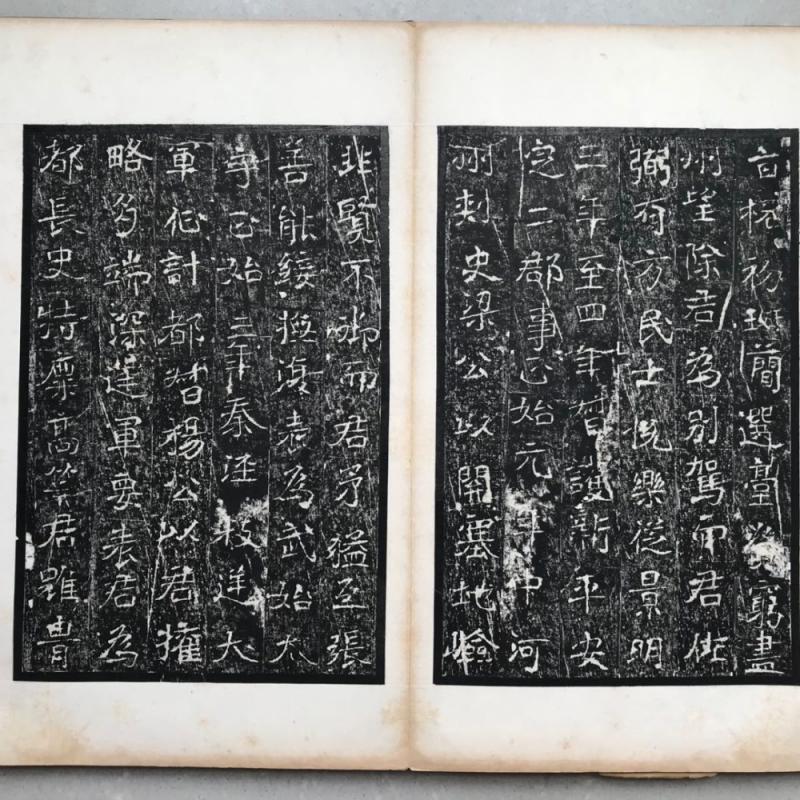 台格初班簡選臺資窮盡
州望除君為別駕而君佐
弼有方民士悅樂從景明
三年至四年暫護新平安
定二郡事正始元年中河
州刺史梁公以開塞地嶮
非賢不御而君矛猛互張
善能綏撫復表為武始太
守正始三年秦涇叛逆大
軍征討都督楊公以君權
略多端深達軍要表君為
都長史特稟高策君雖曹